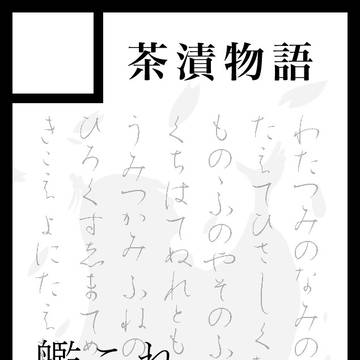 茶漬物語
わたつみのなみの
たえてひさしく
ものゝふのやそのふ
くちはてぬれとも
うみつかみふねの
ひろくすゑまてめ
きこえよにたえ
艦これ